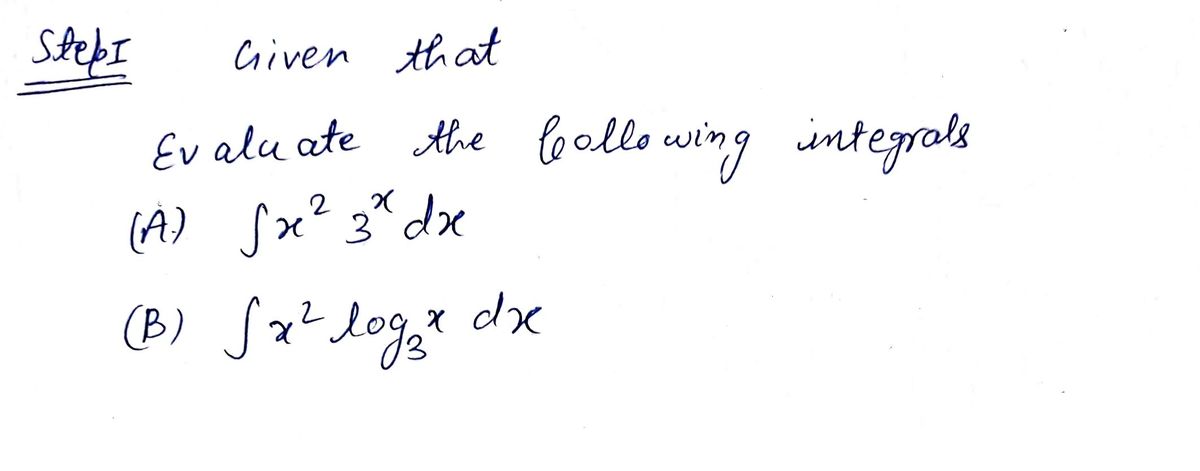 Step I Given that
Evaluate the following integrals
(A) ∫x² 3ˣ dx
(B) ∫x² log₃x dx